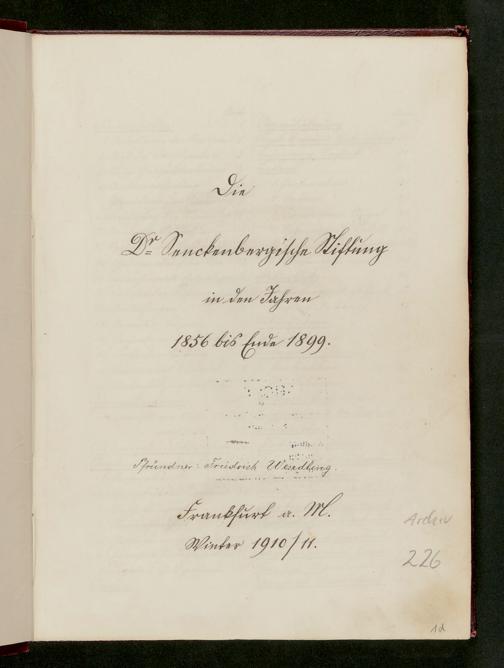 Die
Dr Senckenbergische Stiftung
in den Jahren
1856 bis Ende 1899.
Pfründner: Friedrich
Frankfurt a. M.
Winter 1910/11.
Archiv
226
1d